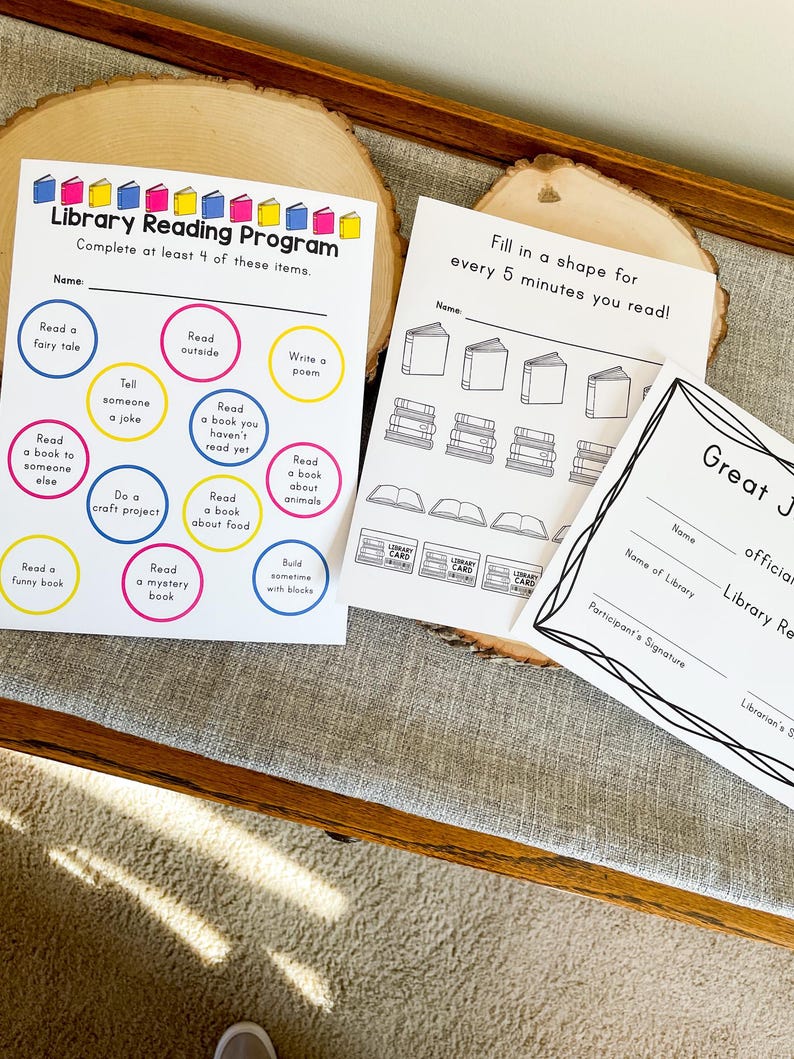 Library Reading Program
Complete at least 4 of these items.
Name:
Read a
fairy tale
Read
outside
Write a
poem
Tell
someone
a joke
Read
a book you
haven't
read yet
Read
a book to
someone
else
Read
a book
about
animals
Do a
craft project
Read
a book
about food
Read a
funny book
Read
a mystery
book
Build
sometime
with blocks
Fill in a shape for
every 5 minutes you read!
Name:
LIBRARY
CARD
LIBRARY
CARD
LIBRARY
CARD
Great J
Name
official
Name of Library
Library Re
Participant's Signature
Librarian's S